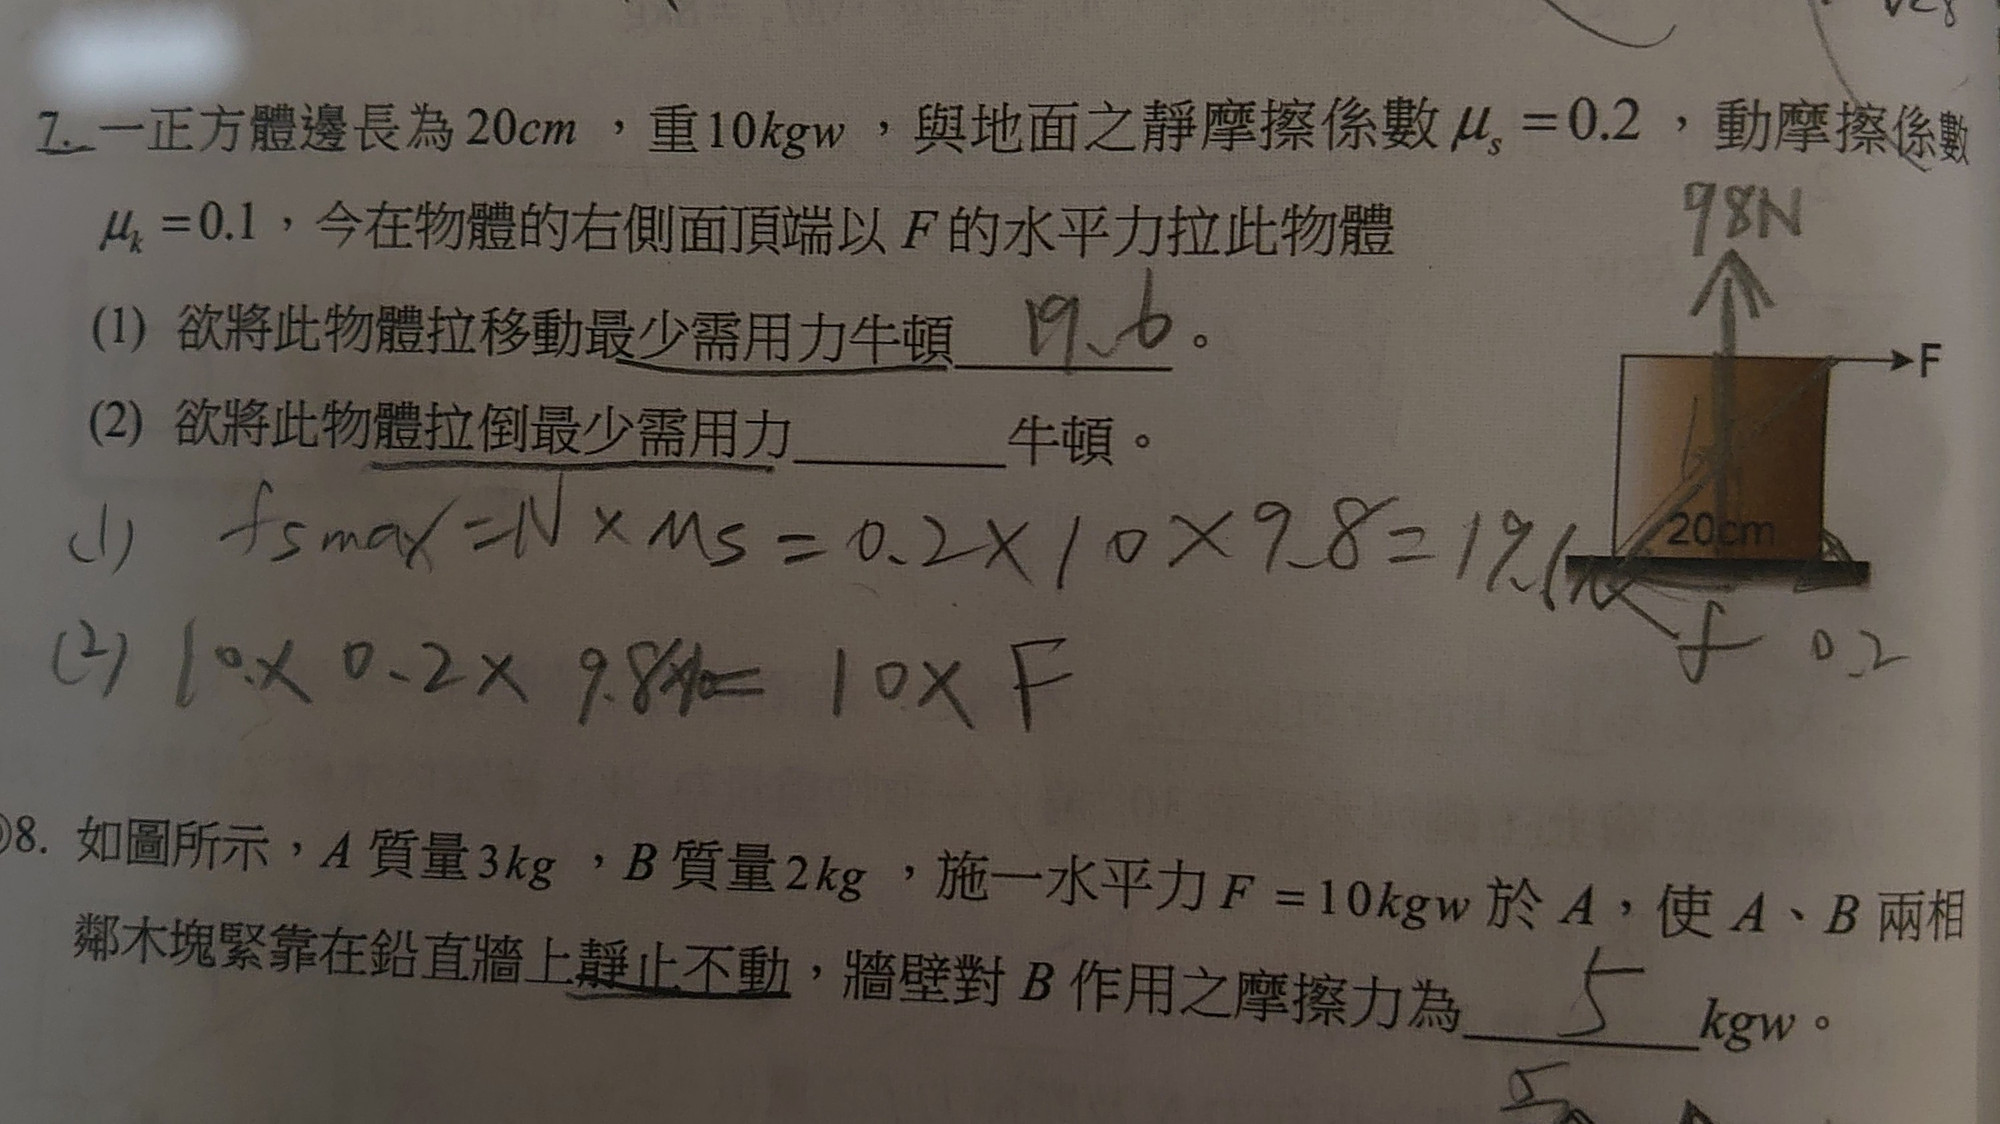 7. 一正方體邊長為20cm，重10kgw，與地面之靜摩擦係數μs=0.2，動摩擦係數
μk=0.1，今在物體的右側面頂端以F的水平力拉此物體
98N
(1) 欲將此物體拉移動最少需用力牛頓 19.6 。
F
(2) 欲將此物體拉倒最少需用力______牛頓。
20cm
(1) fsmax=N×μs=0.2×10×9.8=19.6N
f 0.2
(2) 10×0.2×9.8 = 10×F
8. 如圖所示，A質量3kg，B質量2kg，施一水平力F=10kgw於A，使A、B兩相
鄰木塊緊靠在鉛直牆上靜止不動，牆壁對B作用之摩擦力為 5 kgw。
5